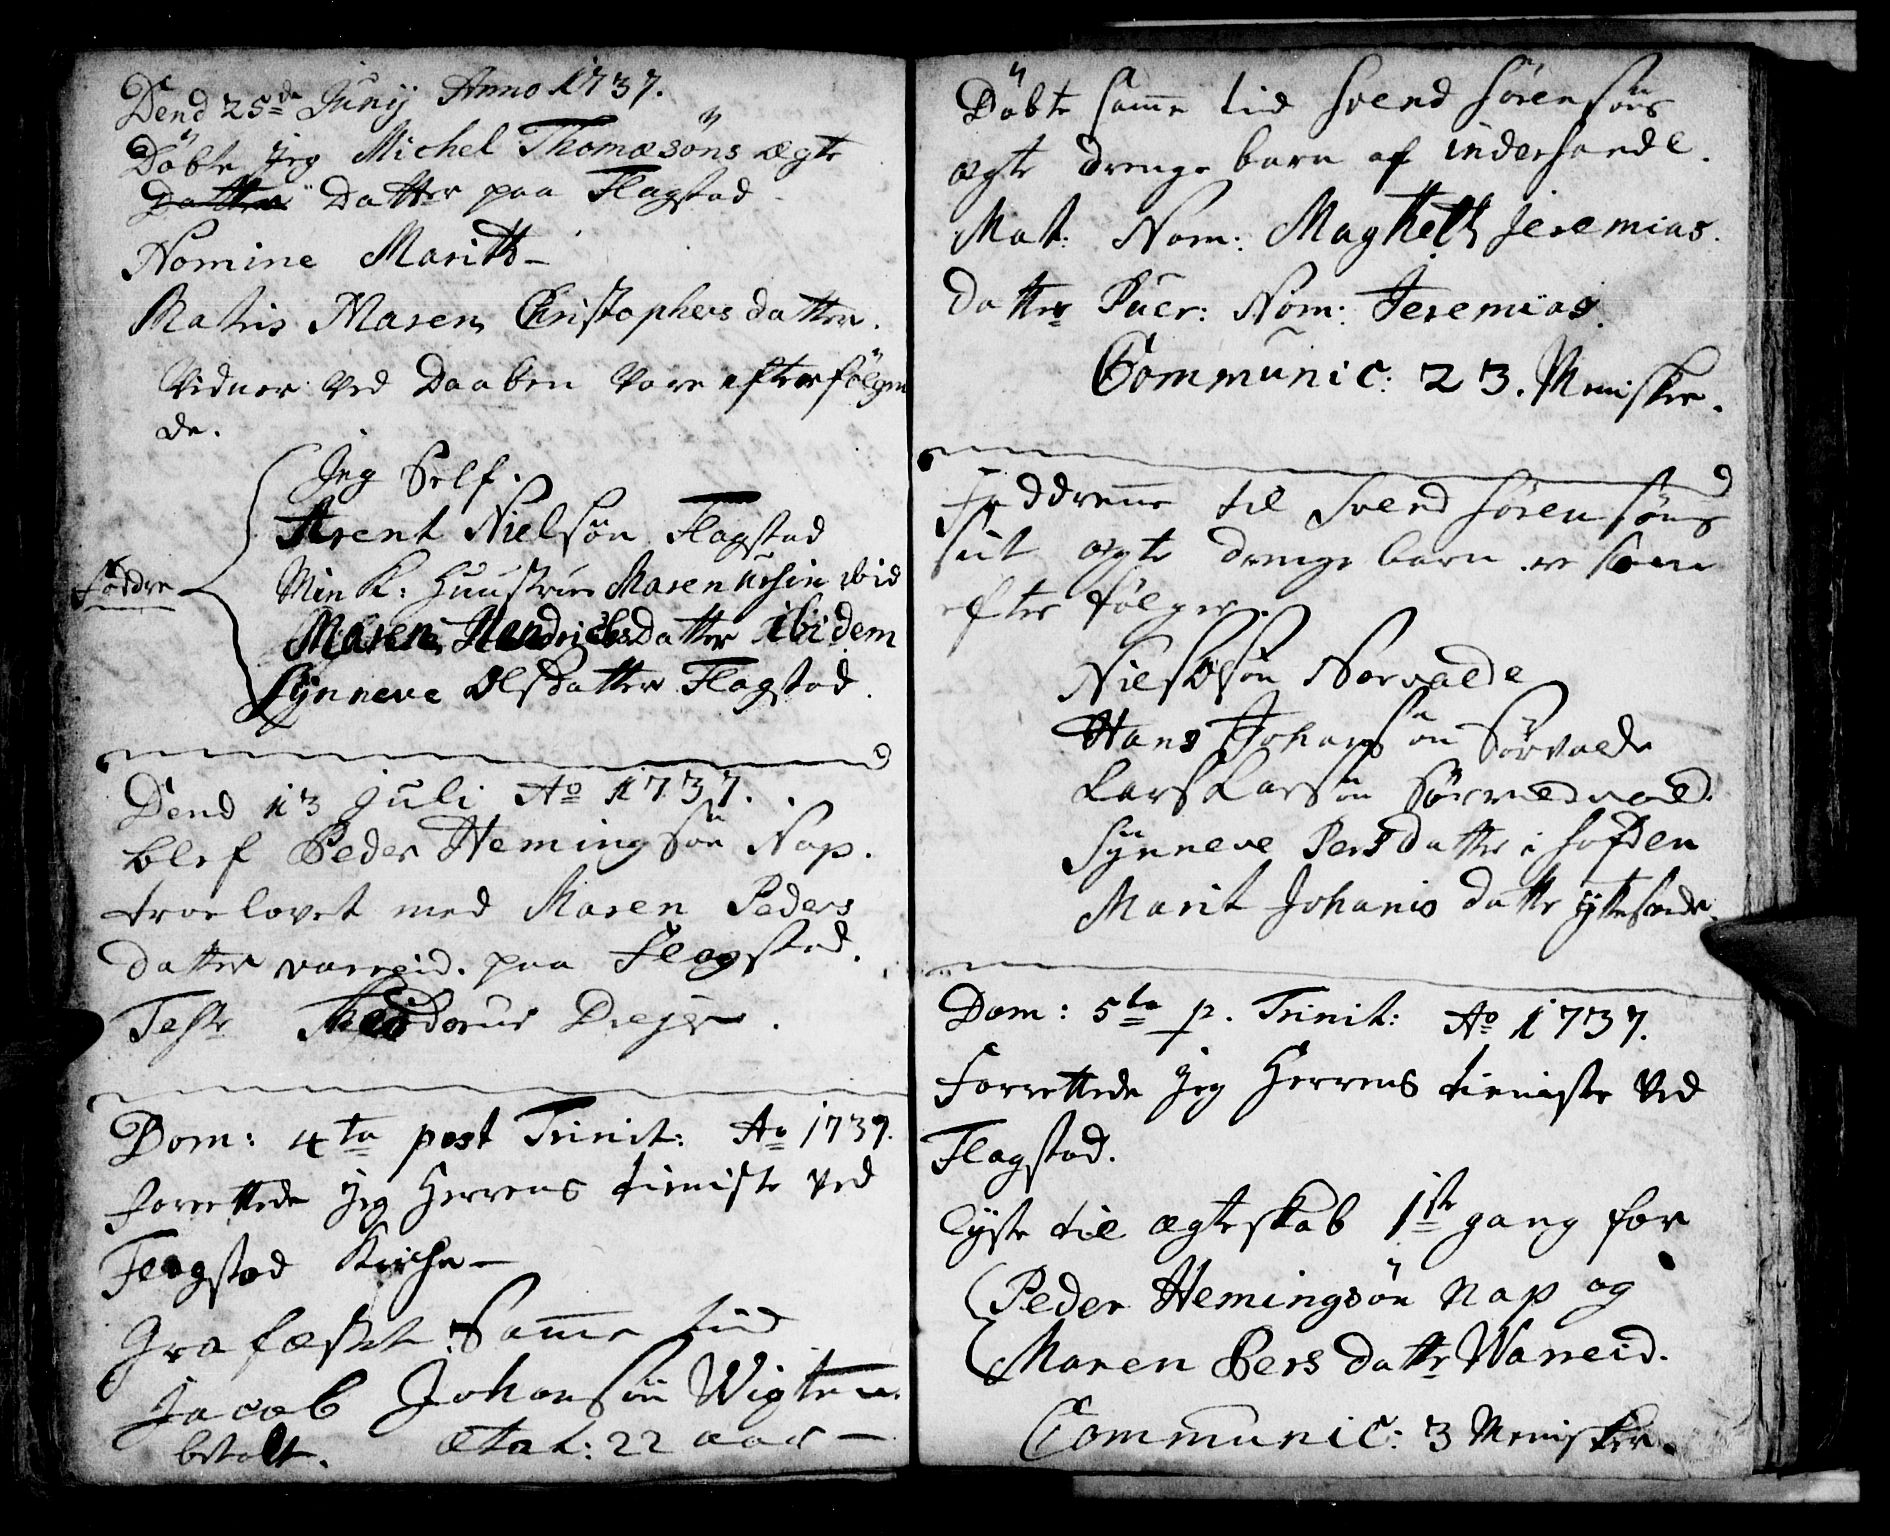 Dend 25de Junÿ Anno 1737.
Döbte jeg Michel Thomæsöns ægte
Datter Datter paa Flagstad
Nomine Maritt
Matris Maren Christophersdatter.
Vidner ved Daaben vare efterfölgen
de.
Jeg Self.
Arent Nielsön Flagstad
Faddre Min K: Huustrue Maren ibid
Maren Hendrichsdatter ibidem
Synneve Olsdatter Flagstad.
Dend 13 Juli Ao 1737.
blef Peder Hemingsön Nap.
troelovet med Maren Peders
datter vareid. paa Flagstad.
Teste Theodorus Dreyer.
Dom: 4ta post Trinit: Ao 1737.
forrettede jeg Herrens tieniste ved
Flagstad Kirche
Grafæstet Samme tiid
Jacob Johansön Wigten
betalt. ætat: 22 aar
Döbte samme tid Svend Sörensöns
ægte drenge barn af indersande.
Mat: Nom: Magrett Jeremias
datter Puer: Nom: Jeremias.
Communic: 23. Menisker.
Faddrene til Svend Sörensöns
sit ægte drenge barn er som
efter fölger.
Niels Norvalde
Hans Johansön Sörvalde
Lars Larsön
Synneve Persdatter i hofden
Marit Johanisdatter ÿtresande.
Dom: 5ta p. Trinit: Ao 1737.
Forrettede jeg Herrens tieniste ved
Flagstad.
Lÿste til ægteskab 1ste gang for
Peder Hemingsön Nap og
Maren Persdatter Wareid.
Communic: 3 Menisker.